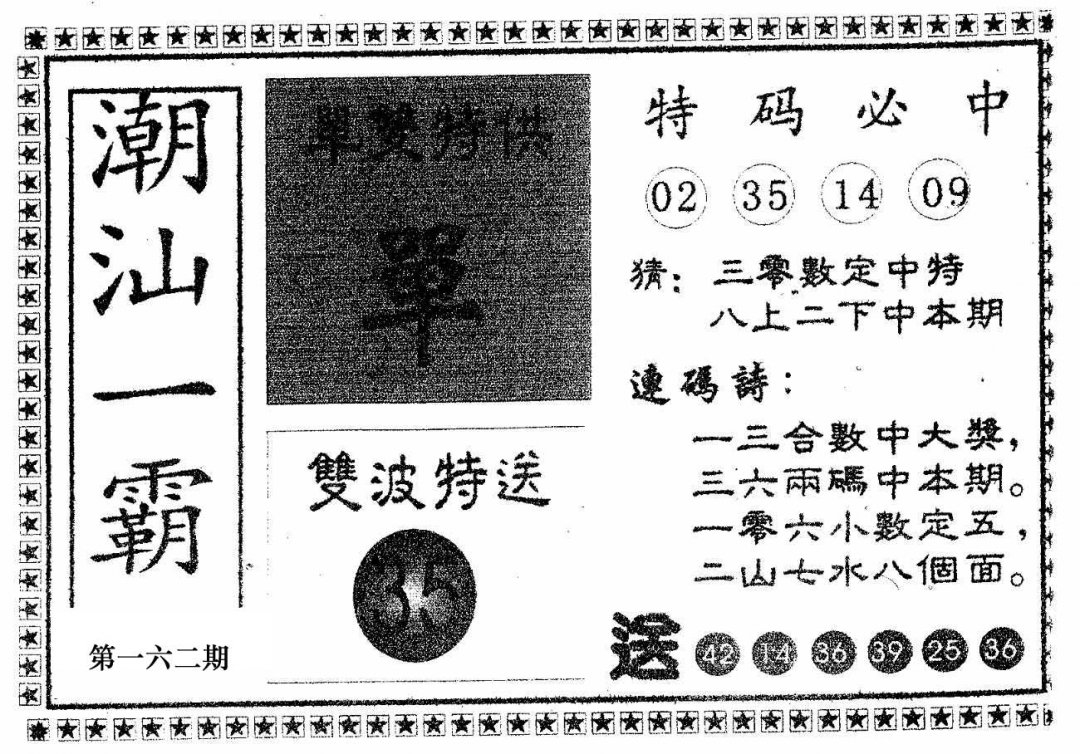 潮汕一霸
第一六二期
單雙特供
單
雙波特送
35
特码必中
02 35 14 09
猜：三零數定中特
八上二下中本期
連碼詩：
一三合數中大獎，
三六兩碼中本期。
一零六小數定五，
二山七水八個面。
送 42 14 36 39 25 36